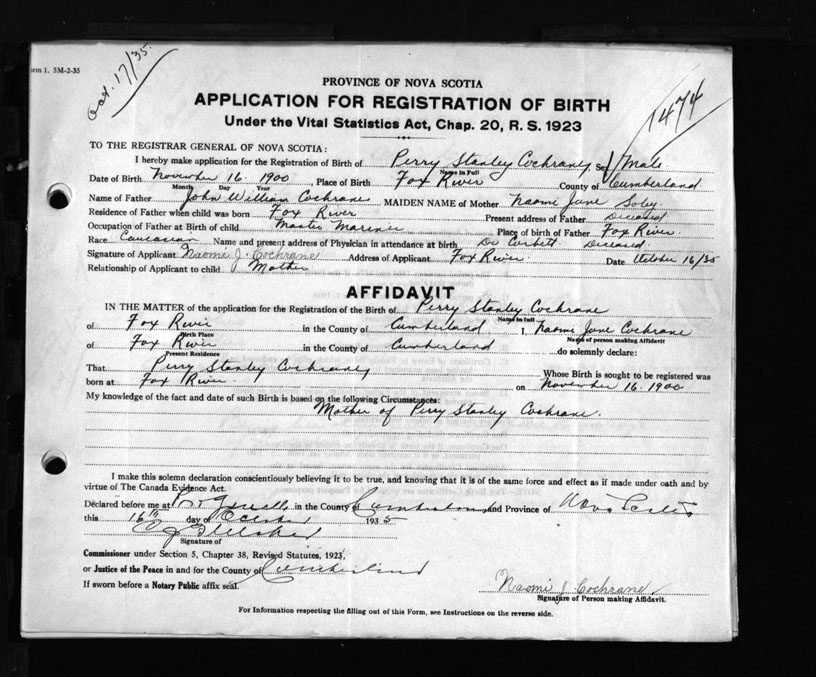 Oct. 17/35
Form 1. 5M-2-35
1474
PROVINCE OF NOVA SCOTIA
APPLICATION FOR REGISTRATION OF BIRTH
Under the Vital Statistics Act, Chap. 20, R. S. 1923
TO THE REGISTRAR GENERAL OF NOVA SCOTIA:
I hereby make application for the Registration of Birth of Perry Stanley Cochrane, Sex Male
Name in Full
Date of Birth November 16. 1900, Place of Birth Fox River County of Cumberland
Month Day Year
Name of Father John William Cochrane MAIDEN NAME of Mother Naomi June Soley
Residence of Father when child was born Fox River Present address of Father Deceased
Occupation of Father at Birth of child Master Mariner Place of birth of Father Fox River.
Race Caucasian Name and present address of Physician in attendance at birth Dr Corbett. Deceased.
Signature of Applicant Naomi J. Cochrane Address of Applicant Fox River. Date October 16/35
Relationship of Applicant to child Mother
AFFIDAVIT
IN THE MATTER of the application for the Registration of the Birth of Perry Stanley Cochrane
Name in full
of Fox River in the County of Cumberland I, Naomi June Cochrane
Birth Place Name of person making Affidavit
of Fox River in the County of Cumberland do solemnly declare:
Present Residence
That Perry Stanley Cochrane, Whose Birth is sought to be registered was
born at Fox River. on November 16. 1900
My knowledge of the fact and date of such Birth is based on the following Circumstances:
Mother of Perry Stanley Cochrane.
I make this solemn declaration conscientiously believing it to be true, and knowing that it is of the same force and effect as if made under oath and by
virtue of The Canada Evidence Act.
Declared before me at in the County of Cumberland and Province of Nova Scotia
this 16th day of October 1935
Signature of
Commissioner under Section 5, Chapter 38, Revised Statutes, 1923,
or Justice of the Peace in and for the County of Cumberland
If sworn before a Notary Public affix seal.
Naomi J Cochrane
Signature of Person making Affidavit.
For Information respecting the filling out of this Form, see Instructions on the reverse side.